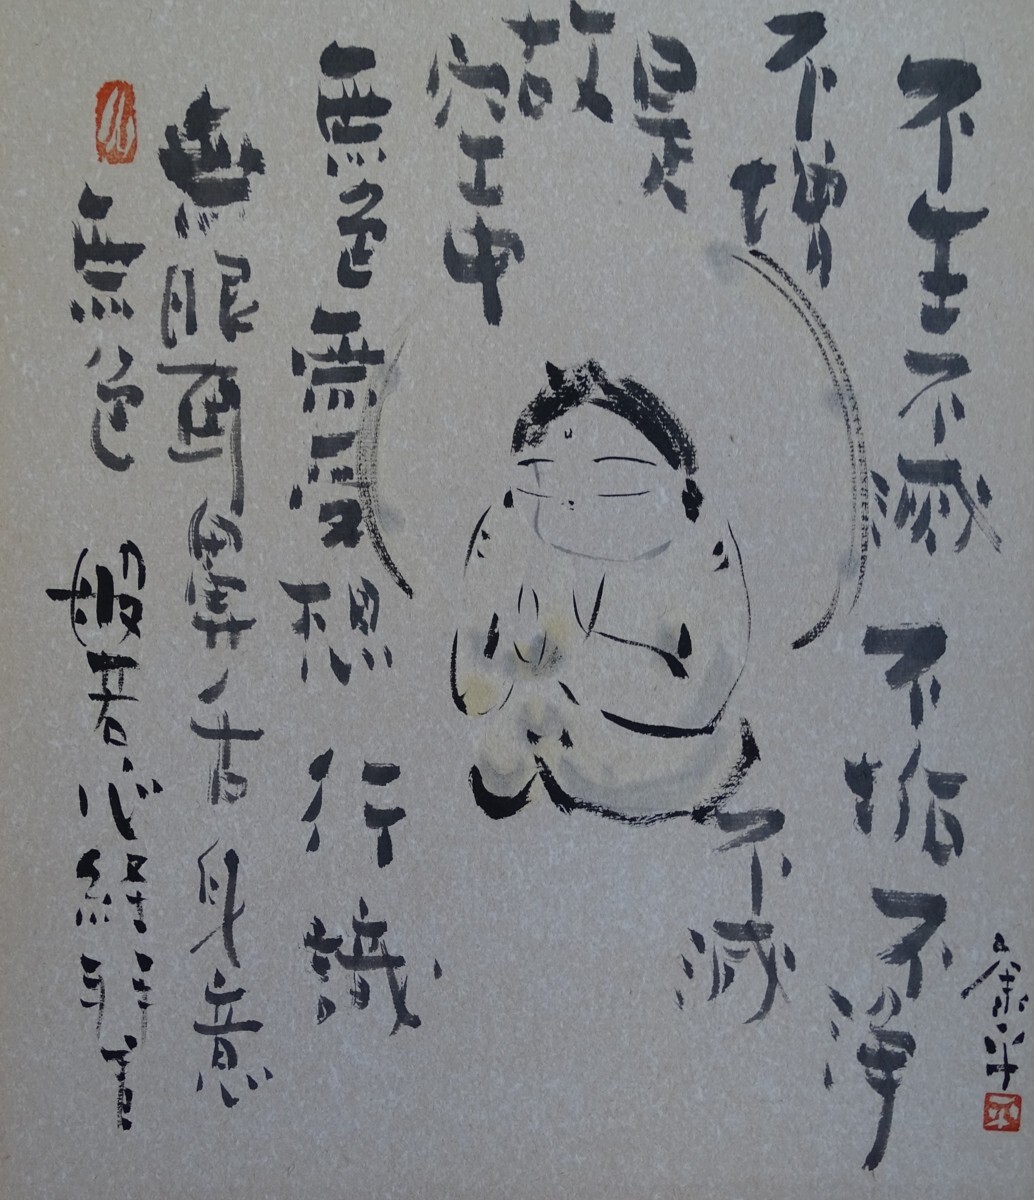 不生不滅 不垢不浄
不増 不減
是故空中
無色無受想 行識
無眼耳鼻舌身意
無色 般若心経